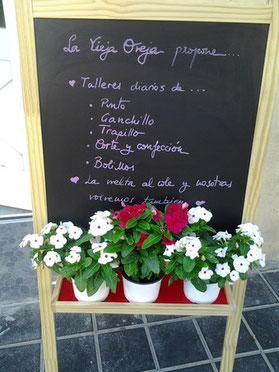 La Vieja Oreja propone...
♥ Talleres diarios de ...
• Punto
• Ganchillo
• Trapillo
• Corte y confección
• Bolillos
♥ La nietra al cole y nosotras
volvemos también ♥